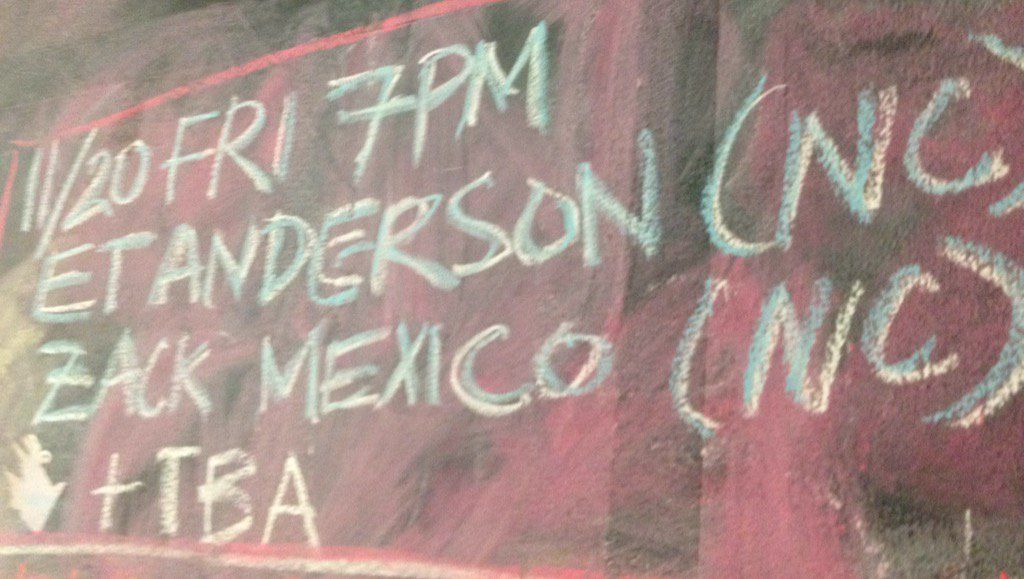 11/20 FRI 7PM
ET ANDERSON (NC)
ZACK MEXICO (NC)
+ TBA